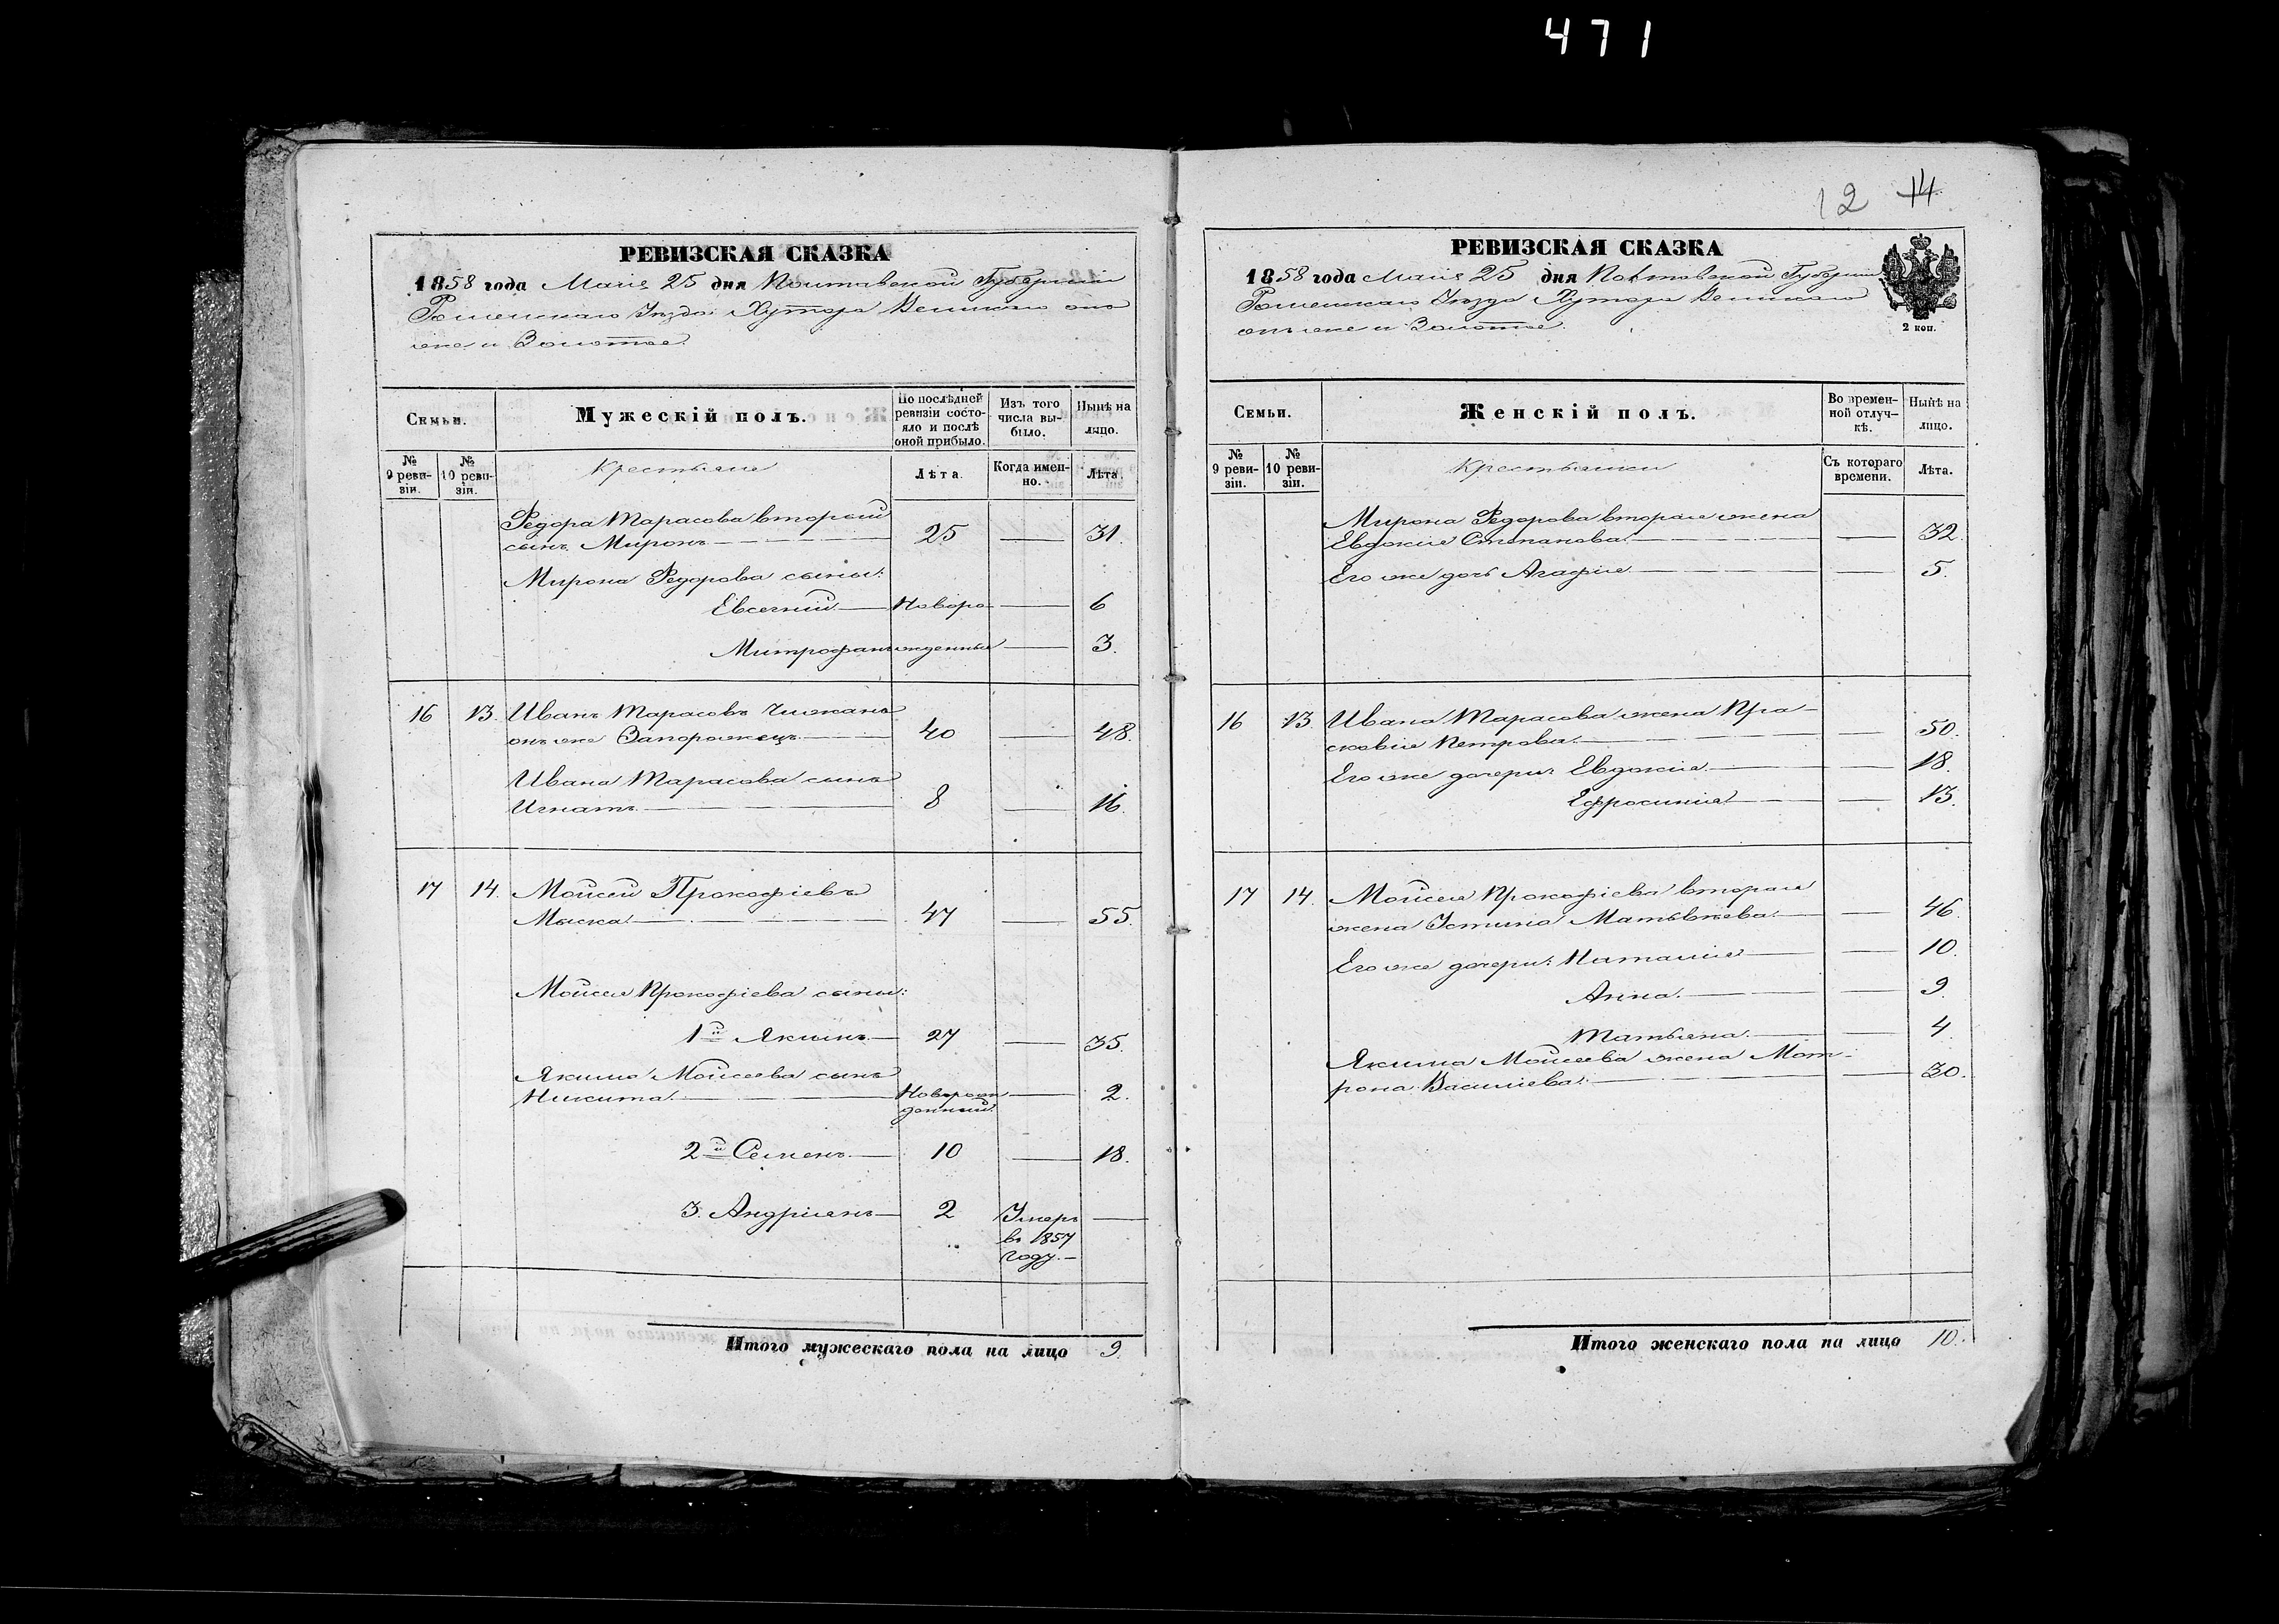 471
РЕВИЗСКАЯ СКАЗКА
1858 года Маія 25 дня Полтавской Губерніи
Роменскаго Уѣзда Хутора Великаго онъ
же и Золотое.
Семьи.
Мужескій полъ.
По послѣдней ревизіи состояло и послѣ оной прибыло.
Изъ того числа выбыло.
Нынѣ на лицо.
№ 9 ревизіи.
№ 10 ревизіи.
Крестьяне
Лѣта.
Когда именно.
Лѣта.
Федора Тарасова вторый
сынъ Миронъ 25 — 31.
Мирона Федорова сыны:
Евсегній Новоро — 6
Митрофанъ жденные — 3.
16 13. Иванъ Тарасовъ Чижанъ
онъ же Запорожецъ 40 — 48.
Ивана Тарасова сынъ
Игнатъ 8 — 16.
17 14. Мойсей Прокофіевъ
Мыска 47 — 55.
Мойсея Прокофіева сыны:
1й Якимъ 27 — 35.
Якима Мойсеева сынъ
Никита Новорож — 2.
денный.
2й Семенъ 10 — 18.
3. Андріянъ 2 Умеръ —
въ 1857
году.
Итого мужескаго пола на лицо 9.
12 14
РЕВИЗСКАЯ СКАЗКА
1858 года Маія 25 дня Полтавской Губерніи
Роменскаго Уѣзда Хутора Великаго
онъ же и Золотое.
2 коп.
Семьи.
Женскій полъ.
Во временной отлучкѣ.
Нынѣ на лицо.
№ 9 ревизіи.
№ 10 ревизіи.
Крестьянки
Съ котораго времени.
Лѣта.
Мирона Федорова вторая жена
Евдокія Степанова — 32.
Его же дочь Агафія — 5.
16 13. Ивана Тарасова жена Пра-
сковія Петрова — 50.
Его же дочери: Евдокія — 18.
Ефросинія — 13.
17 14. Мойсея Прокофіева вторая
жена Устина Матвѣева — 46.
Его же дочери: Наталія — 10.
Анна. — 9.
Татьяна. — 4.
Якима Мойсеева жена Мат-
рона Василіева. — 30.
Итого женскаго пола на лицо 10.